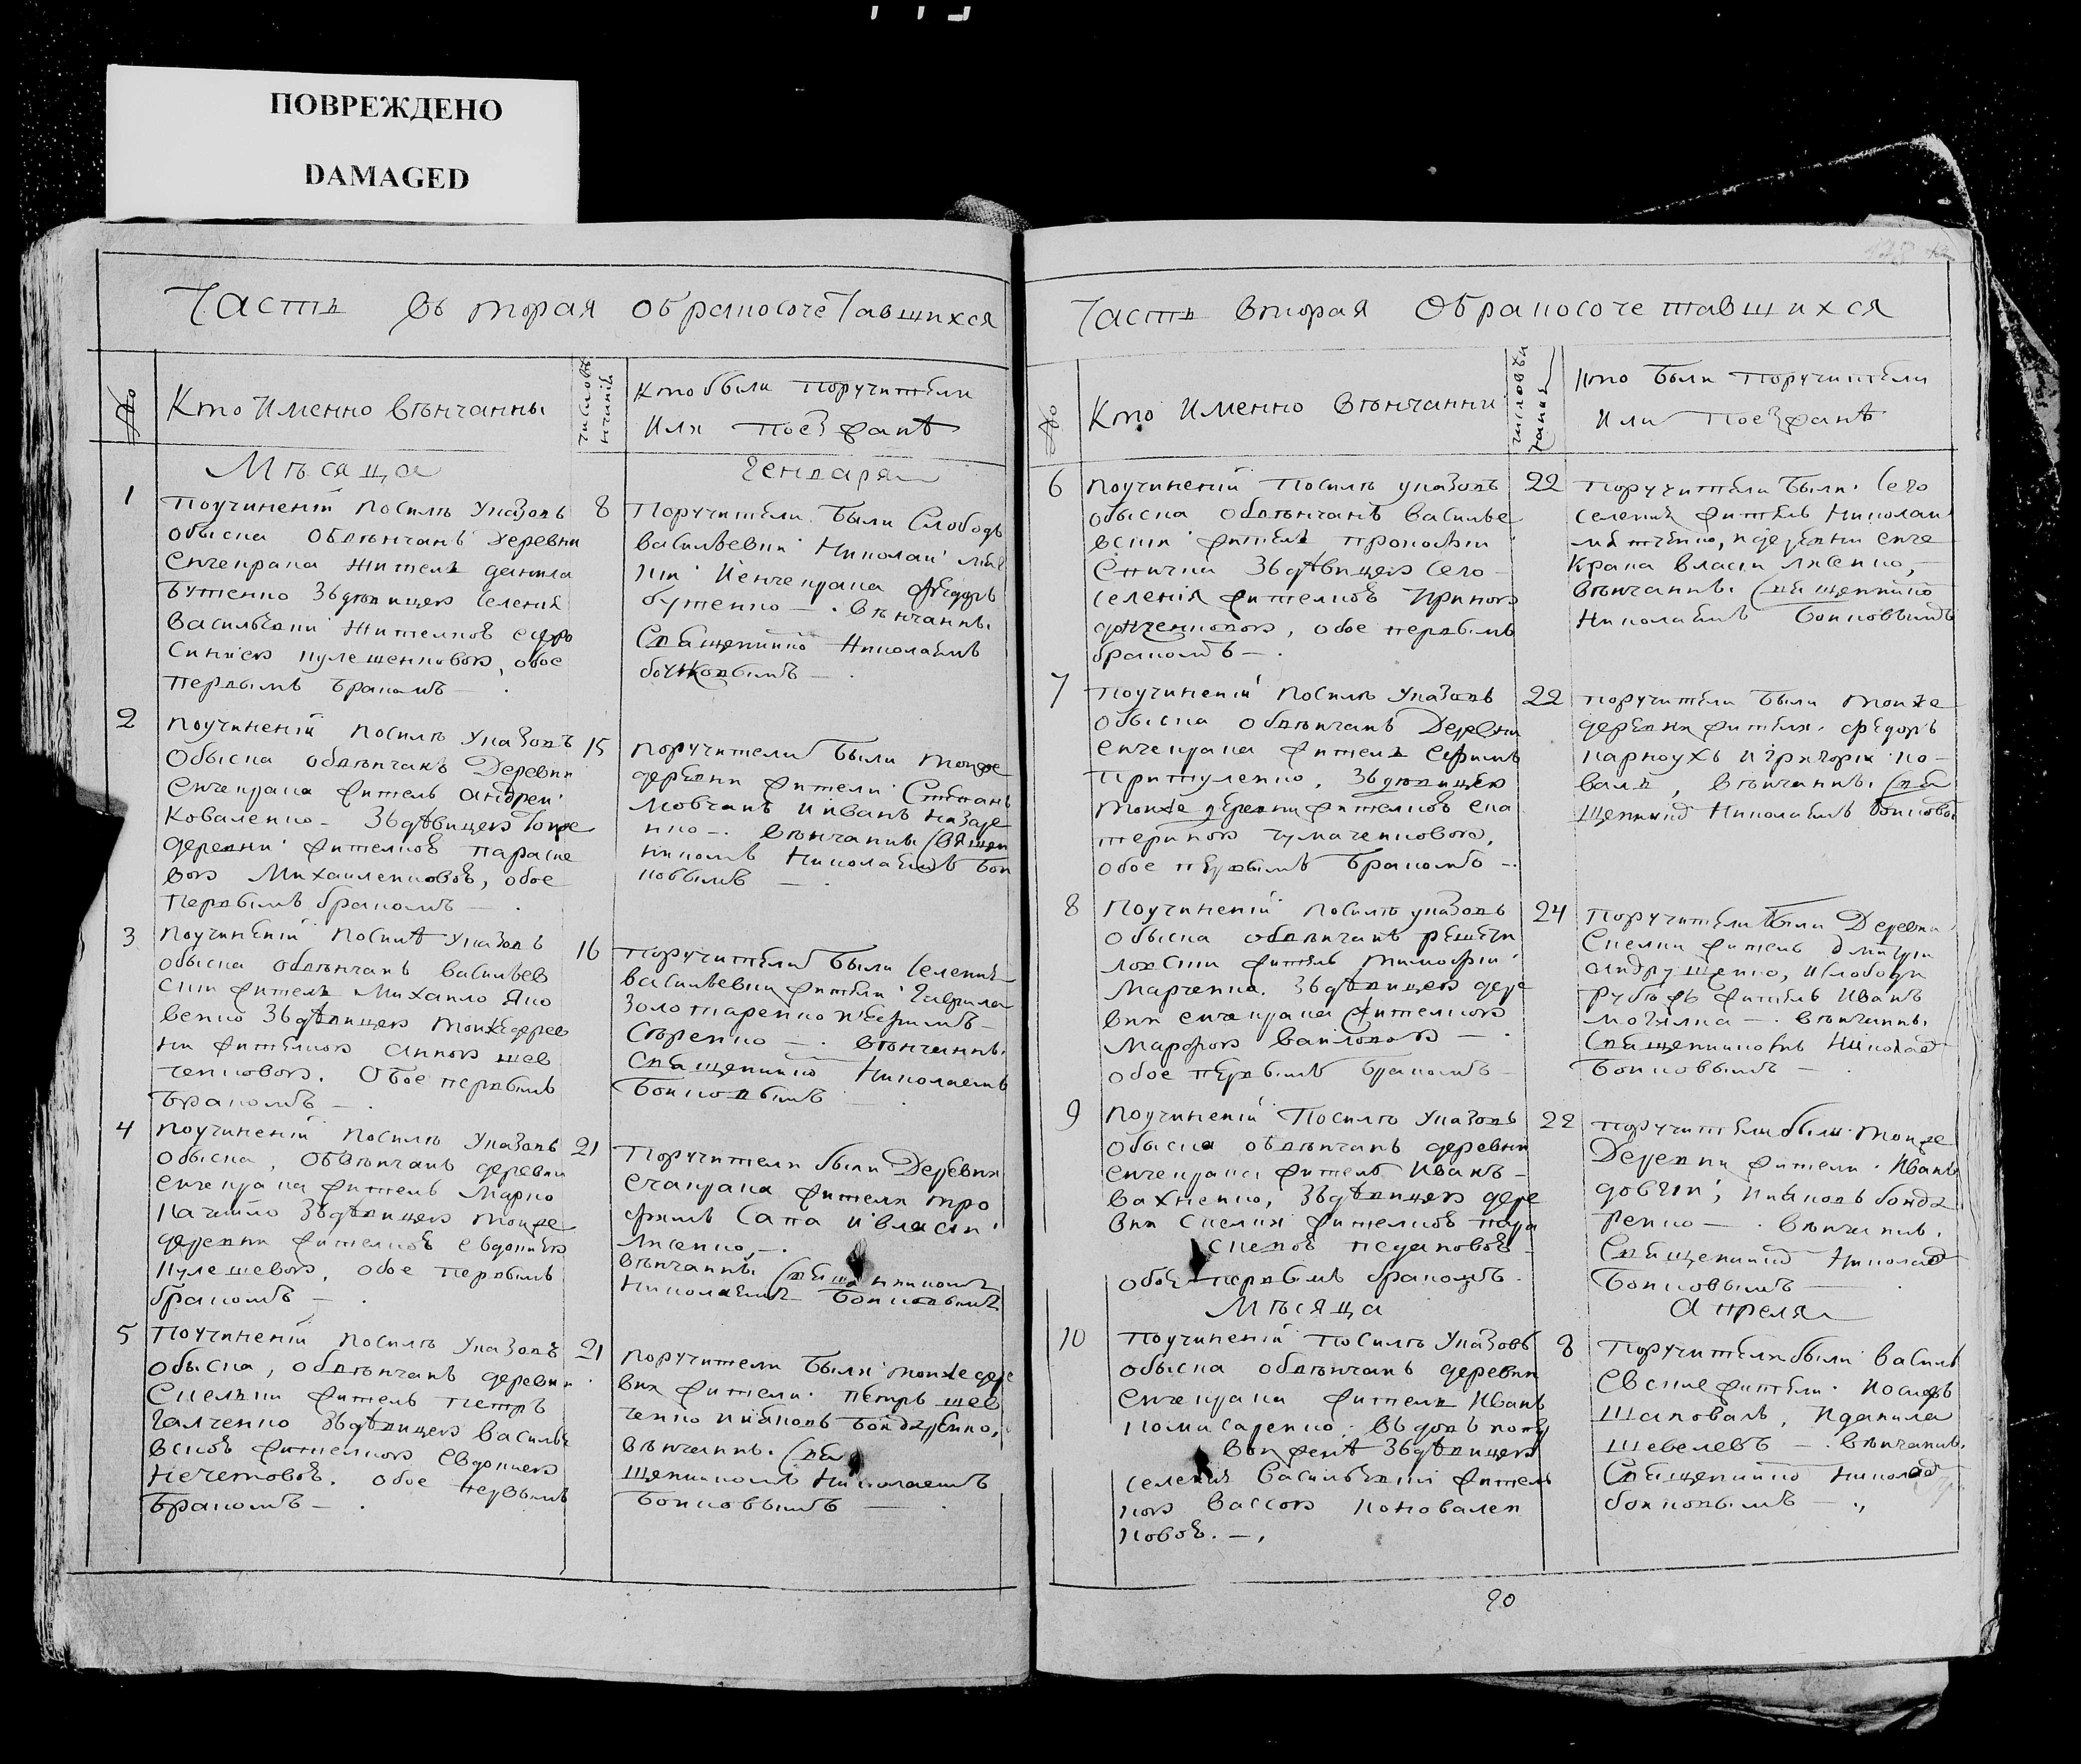 ПОВРЕЖДЕНО
DAMAGED
Часть вторая о бракосочетавшихся
№
Кто Именно вѣнчанны
число вѣнчаній
Кто были поручители
Или поезжанѣ
Мѣсяца
Генваря
1
По учиненіи по силѣ указовъ
обыска обвѣнчанъ Деревни
Енчекрака житель данила
бутенко з дѣвицею селенія
Васильевки жителковъ евфро
синією кулешенковою, обое
первымъ бракомъ — .
8
Поручители были Слободъ
Васильевки Николай
Федоръ
бутенко — . вѣнчанны
Священнико Николаемъ
бойковымъ — .
2
По учиненіи по силѣ указовъ
обыска обвѣнчанъ Деревни
Енчекрака житель андрей
Коваленко — з дѣвицею тойже
деревни жителковъ параске
вою Михайленковой, обое
первымъ бракомъ — .
15
поручители были тойже
деревни жители Стефанъ
Мовчанъ и иванъ назаре
нко — . вѣнчанны Священ
никомъ Николаемъ Бой
ковымъ — .
3
По учиненіи по силѣ указовъ
обыска обвѣнчанъ васильев
скій житель Михайло Яко
венко з дѣвицею тойже дерев
ни жителкою анною шев
ченковою. Обое первымъ
бракомъ — .
16
поручители были селенія
васильевки жители гаврила
золотаренко и ефимъ
Сѣренко — . вѣнчанны
Священнико Николаемъ
Бойковымъ — .
4
По учиненіи по силѣ указовъ
обыска, обвѣнчанъ деревни
Енчекрака житель Марко
з дѣвицею тойже
деревни жителковъ евдокією
кулешевою, обое первымъ
бракомъ — .
21
Поручители были Деревни
Ечакрака жители тро
фимъ Сапа и власій
лисенко, — .
вѣнчанны Священникомъ
Николаемъ Бойковымъ
5
По учиненіи по силѣ указовъ
обыска, обвѣнчанъ деревни
Скельки житель петръ
галченко з дѣвицею василье
вской жителкою Евдокією
Нечетовой. обое первымъ
бракомъ — .
21
поручители были тойже дере
вни жители петръ шев
ченко и яковъ Бондаренко,
вѣнчанны. Свя
щенникомъ Николаемъ
Бойковымъ — .
Часть вторая О бракосочетавшихся
№
Кто Именно вѣнчанни
число вѣнчанія
Кто были поручители
Или поезжанѣ
6
По учиненіи по силѣ указовъ
обыска обвѣнчанъ василье
вскій житель прокофій
Сничка з дѣвицею сего
селенія жителковъ Ириною
донченковою, обое первымъ
бракомъ — .
22
поручители были сего
селенія житель Николай
и деревни енче
крака власій лисенко,
вѣнчанны Священнико
Николаемъ Бойковымъ
7
По учиненіи по силѣ указовъ
обыска обвѣнчанъ Деревни
енчекрака житель ефимъ
притуленко, з дѣвицею
тойже деревни жителковъ ека
териною чумаченковою,
обое первымъ бракомъ — .
22
поручители были тойже
деревни жители. Федоръ
карноухъ и григорій ко
валь, вѣнчанны свя
щенико Николаемъ Бойково
8
По учиненіи по силѣ указовъ
обыска обвѣнчанъ решети
ловскій житель тимофій
Марченко. з дѣвицею дере
вни енчекрака жителкою
Марфою Вайловою — .
обое первымъ бракомъ —
24
поручители были Деревни
Скелки житель дмитрій
андрущенко, и слободи
житель Иванъ
могилка — . вѣнчанны
Священникомъ Николае
Бойковымъ — .
9
По учиненіи по силѣ указовъ
обыска обвѣнчанъ деревни
енчекрака житель Иванъ
вахненко, з дѣвицею дере
вни скелки жителковъ пара
скевой
обое первымъ бракомъ.
22
поручители были тойже
Деревни жители. Иванъ
довгій, и яковъ бонда
ренко — . вѣнчанны.
Священнико Николае
Бойковымъ — .
Мѣсяца
Апреля
10
По учиненіи по силѣ указовъ
обыска обвѣнчанъ деревни
енчекрака житель Иванъ
Комисаренко; вдовъ
з дѣвицею
селенія Васильевки жител
кою Вассою коновален
ковой. — .
8
Поручители были Василь
евские жители.
Шаповалъ, и данила
шевелевъ — . вѣнчанны.
Священнико Николае
бойковымъ — .
90